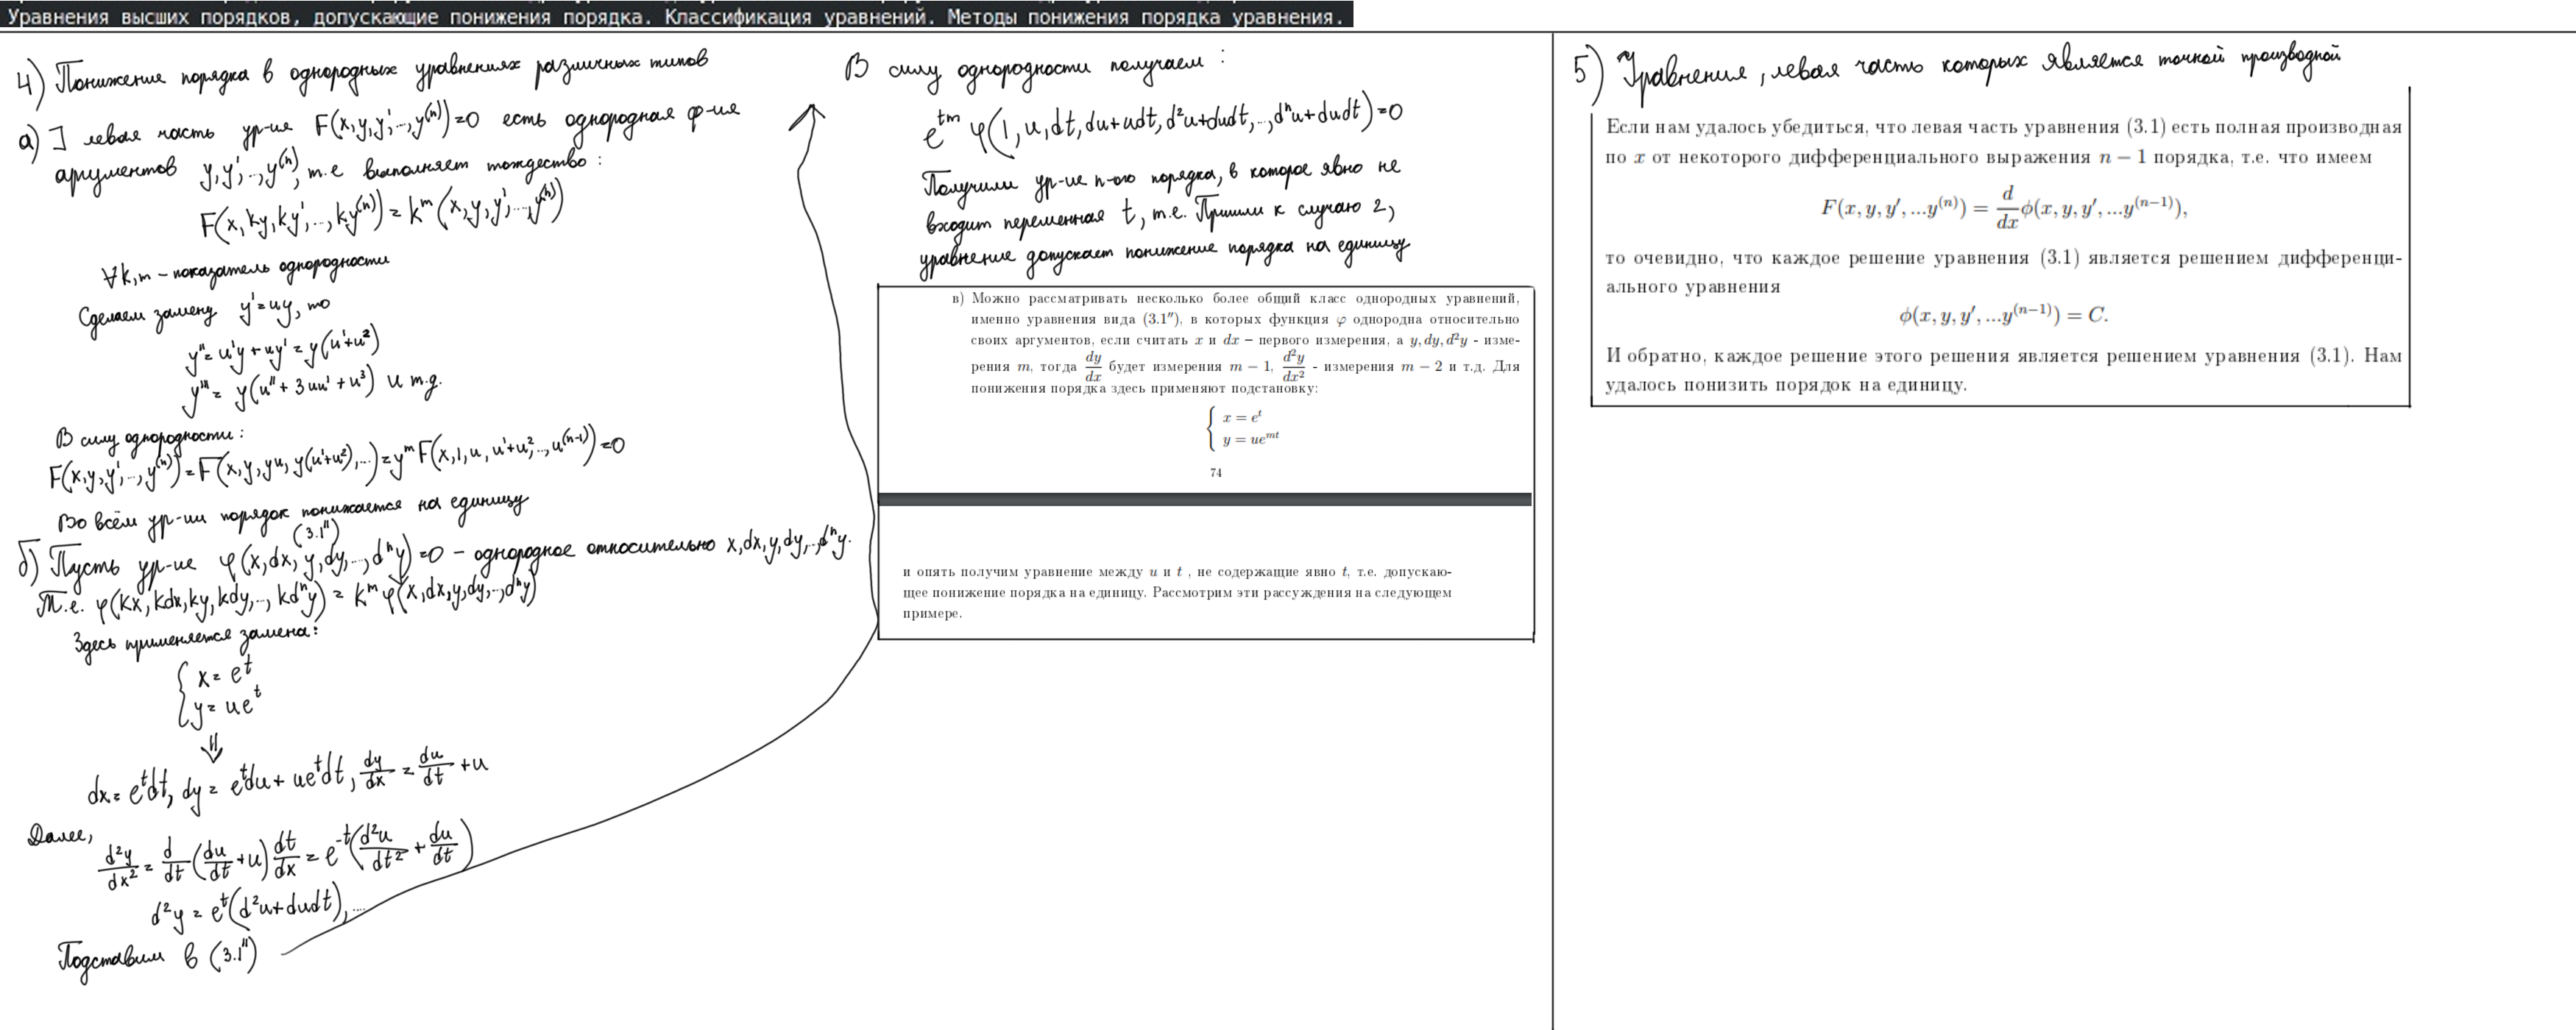 Уравнения высших порядков, допускающие понижения порядка. Классификация уравнений. Методы понижения порядка уравнения.
4) Понижение порядка в однородных уравнениях различных типов
а) ] левая часть ур-ие F(x,y,y',..,y⁽ⁿ⁾)=0 есть однородная ф-ия
аргументов y,y',..,y⁽ⁿ⁾, т.е выполняет тождество:
F(x,ky,ky',..,ky⁽ⁿ⁾) = kᵐ(x,y,y',..,y⁽ⁿ⁾)
∀k,m – показатель однородности
Сделаем замену y'=uy, то
y''= u'y+uy' = y(u'+u²)
y'''= y(u''+3uu'+u³) и т.д.
В силу однородности:
F(x,y,y',..,y⁽ⁿ⁾) = F(x,y,yu,y(u'+u²),...) = yᵐF(x,1,u,u'+u²,..,u⁽ⁿ⁻¹⁾)=0
Во всём ур-ии порядок понижается на единицу
(3.1'')
б) Пусть ур-ие φ(x,dx,y,dy,..,dⁿy)=0 – однородное относительно x,dx,y,dy,..,dⁿy.
Т.е. φ(kx,kdx,ky,kdy,..,kdⁿy) = kᵐφ(x,dx,y,dy,..,dⁿy)
Здесь применяется замена:
{ x = eᵗ
y = ueᵗ
⇓
dx = eᵗdt, dy = eᵗdu + ueᵗdt, dy/dx = du/dt + u
Далее,
d²y/dx² = d/dt (du/dt + u) dt/dx = e⁻ᵗ(d²u/dt² + du/dt)
d²y = eᵗ(d²u+dudt),...
Подставим в (3.1'')
В силу однородности получаем:
eᵗᵐ φ(1,u,dt,du+udt,d²u+dudt,..,dⁿu+dudt)=0
Получили ур-ие n-ого порядка, в которое явно не
входит переменная t, т.е. Пришли к случаю 2,
уравнение допускает понижение порядка на единицу
в) Можно рассматривать несколько более общий класс однородных уравнений,
именно уравнения вида (3.1''), в которых функция φ однородна относительно
своих аргументов, если считать x и dx – первого измерения, а y, dy, d²y - изме-
рения m, тогда dy/dx будет измерения m − 1, d²y/dx² - измерения m − 2 и т.д. Для
понижения порядка здесь применяют подстановку:
{ x = eᵗ
y = ueᵐᵗ
74
и опять получим уравнение между u и t , не содержащие явно t, т.е. допускаю-
щее понижение порядка на единицу. Рассмотрим эти рассуждения на следующем
примере.
5) Уравнения, левая часть которых является точной производной
Если нам удалось убедиться, что левая часть уравнения (3.1) есть полная производная
по x от некоторого дифференциального выражения n − 1 порядка, т.е. что имеем
F(x, y, y′, ...y⁽ⁿ⁾) = d/dx ϕ(x, y, y′, ...y⁽ⁿ⁻¹⁾),
то очевидно, что каждое решение уравнения (3.1) является решением дифференци-
ального уравнения
ϕ(x, y, y′, ...y⁽ⁿ⁻¹⁾) = C.
И обратно, каждое решение этого решения является решением уравнения (3.1). Нам
удалось понизить порядок на единицу.